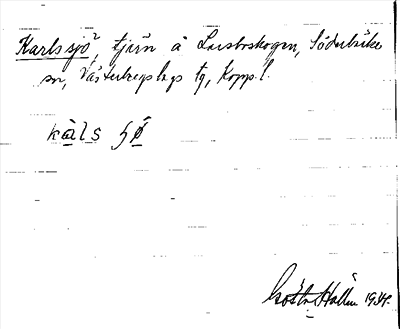 Karlssjö, tjärn å Larsboskogen, Söderbärke
sn, Västerbergslags tg, Kopp. l.
kàls ʃǿ
Gösta Hallm 1934.